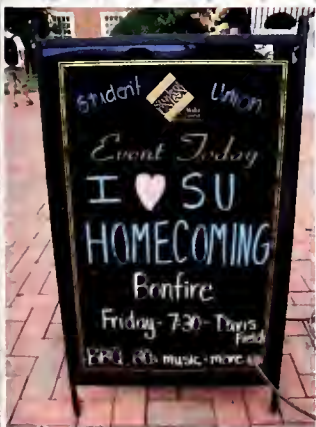 Student Union
Event Today
I ♥ SU
HOMECOMING
Bonfire
Friday - 7:30 -
Field
BBQ, music - more